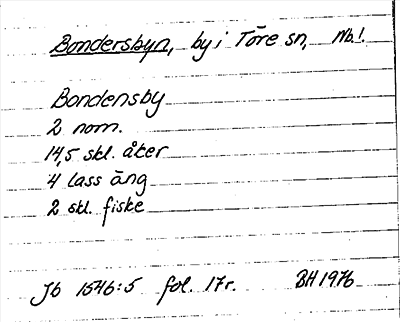 Bondersbyn, by i Töre sn, Nb.!
Bondensby
2 nom.
14,5 skl. åker
4 lass äng
2 skl. fiske
Jb 1546:5 fol. 17r. BH 1976